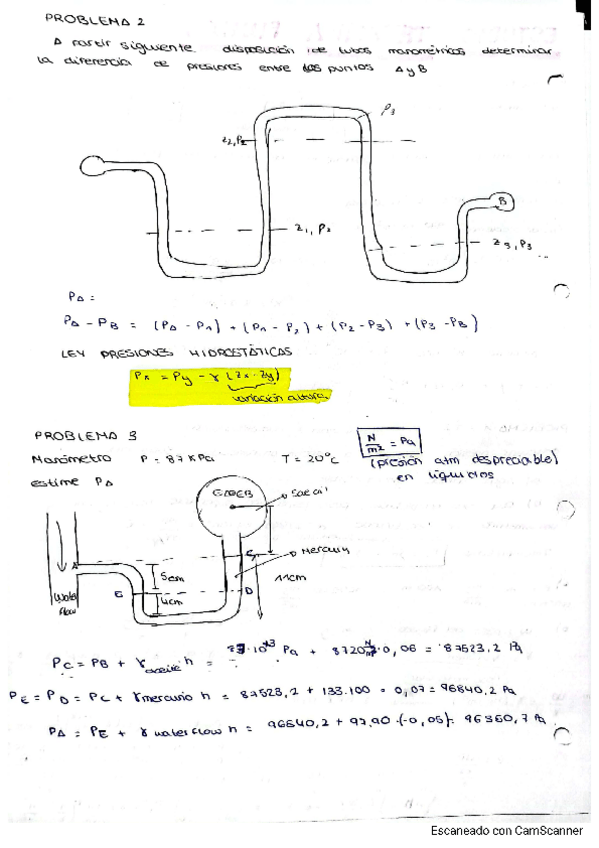 PROBLEMA 2
A partir siguiente disposición de tubos manométricos determinar
la diferencia de presiones entre los puntos A y B
P3
z2, P2
B
z1, P2
z3, P3
PA =
PA - PB = (PA - P1) + (P1 - P2) + (P2 - P3) + (P3 - PB)
LEY PRESIONES HIDROSTÁTICAS
Px = Py - γ (zx - zy)
variación altura.
PROBLEMA 3
N/m² = Pa
Manómetro P = 87 KPa T = 20°C (presión atm despreciable)
estime PA en líquidos
SAE
Mercurio
A
5cm
11cm
E
D
4cm
Water
Flow
PC = PB + γaceite h = 87·10^3 Pa + 8720 N/m³ · 0,06 = 87523,2 Pa
PE = PD = PC + γmercurio h = 87523,2 + 133.100 · 0,07 = 96840,2 Pa
PA = PE + γ waterflow h = 96840,2 + 97,90 · (-0,05) = 96350,7 Pa
Escaneado con CamScanner